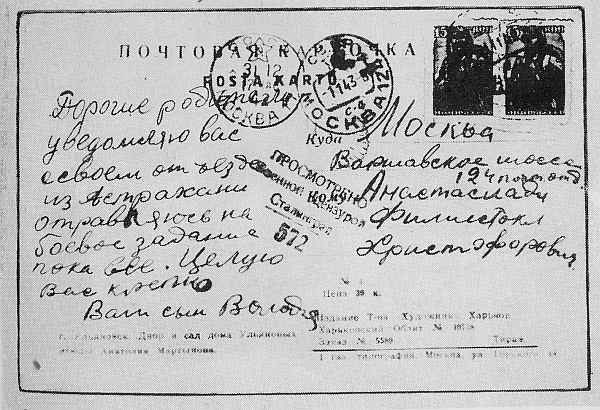 ПОЧТОВАЯ КАРТОЧКА
POŜTA KARTO
31 12
МОСКВА
-1 1 43
МОСКВА 127
15
Дорогие родители
уведомляю вас
о своем отъезде
из Астрахани
отправляюсь на
боевое задание
пока все. Целую
Вас крепко
Ваш сын Володя
Куда
Москва
Варшавское шоссе
124 почт. отд.
Кому
Анастасиади
Филистокл
Христофорович
ПРОСМОТРЕНО
Военной Цензурой
Сталинград
572
Цена 39 к.
г. Ульяновск. Двор и сад дома Ульяновых
Анатолия Мартынова.
Издание Т-ва Художник Харьков
Харьковский Облит №
Заказ № 5589 Тираж
1 тип. Москва, ул.